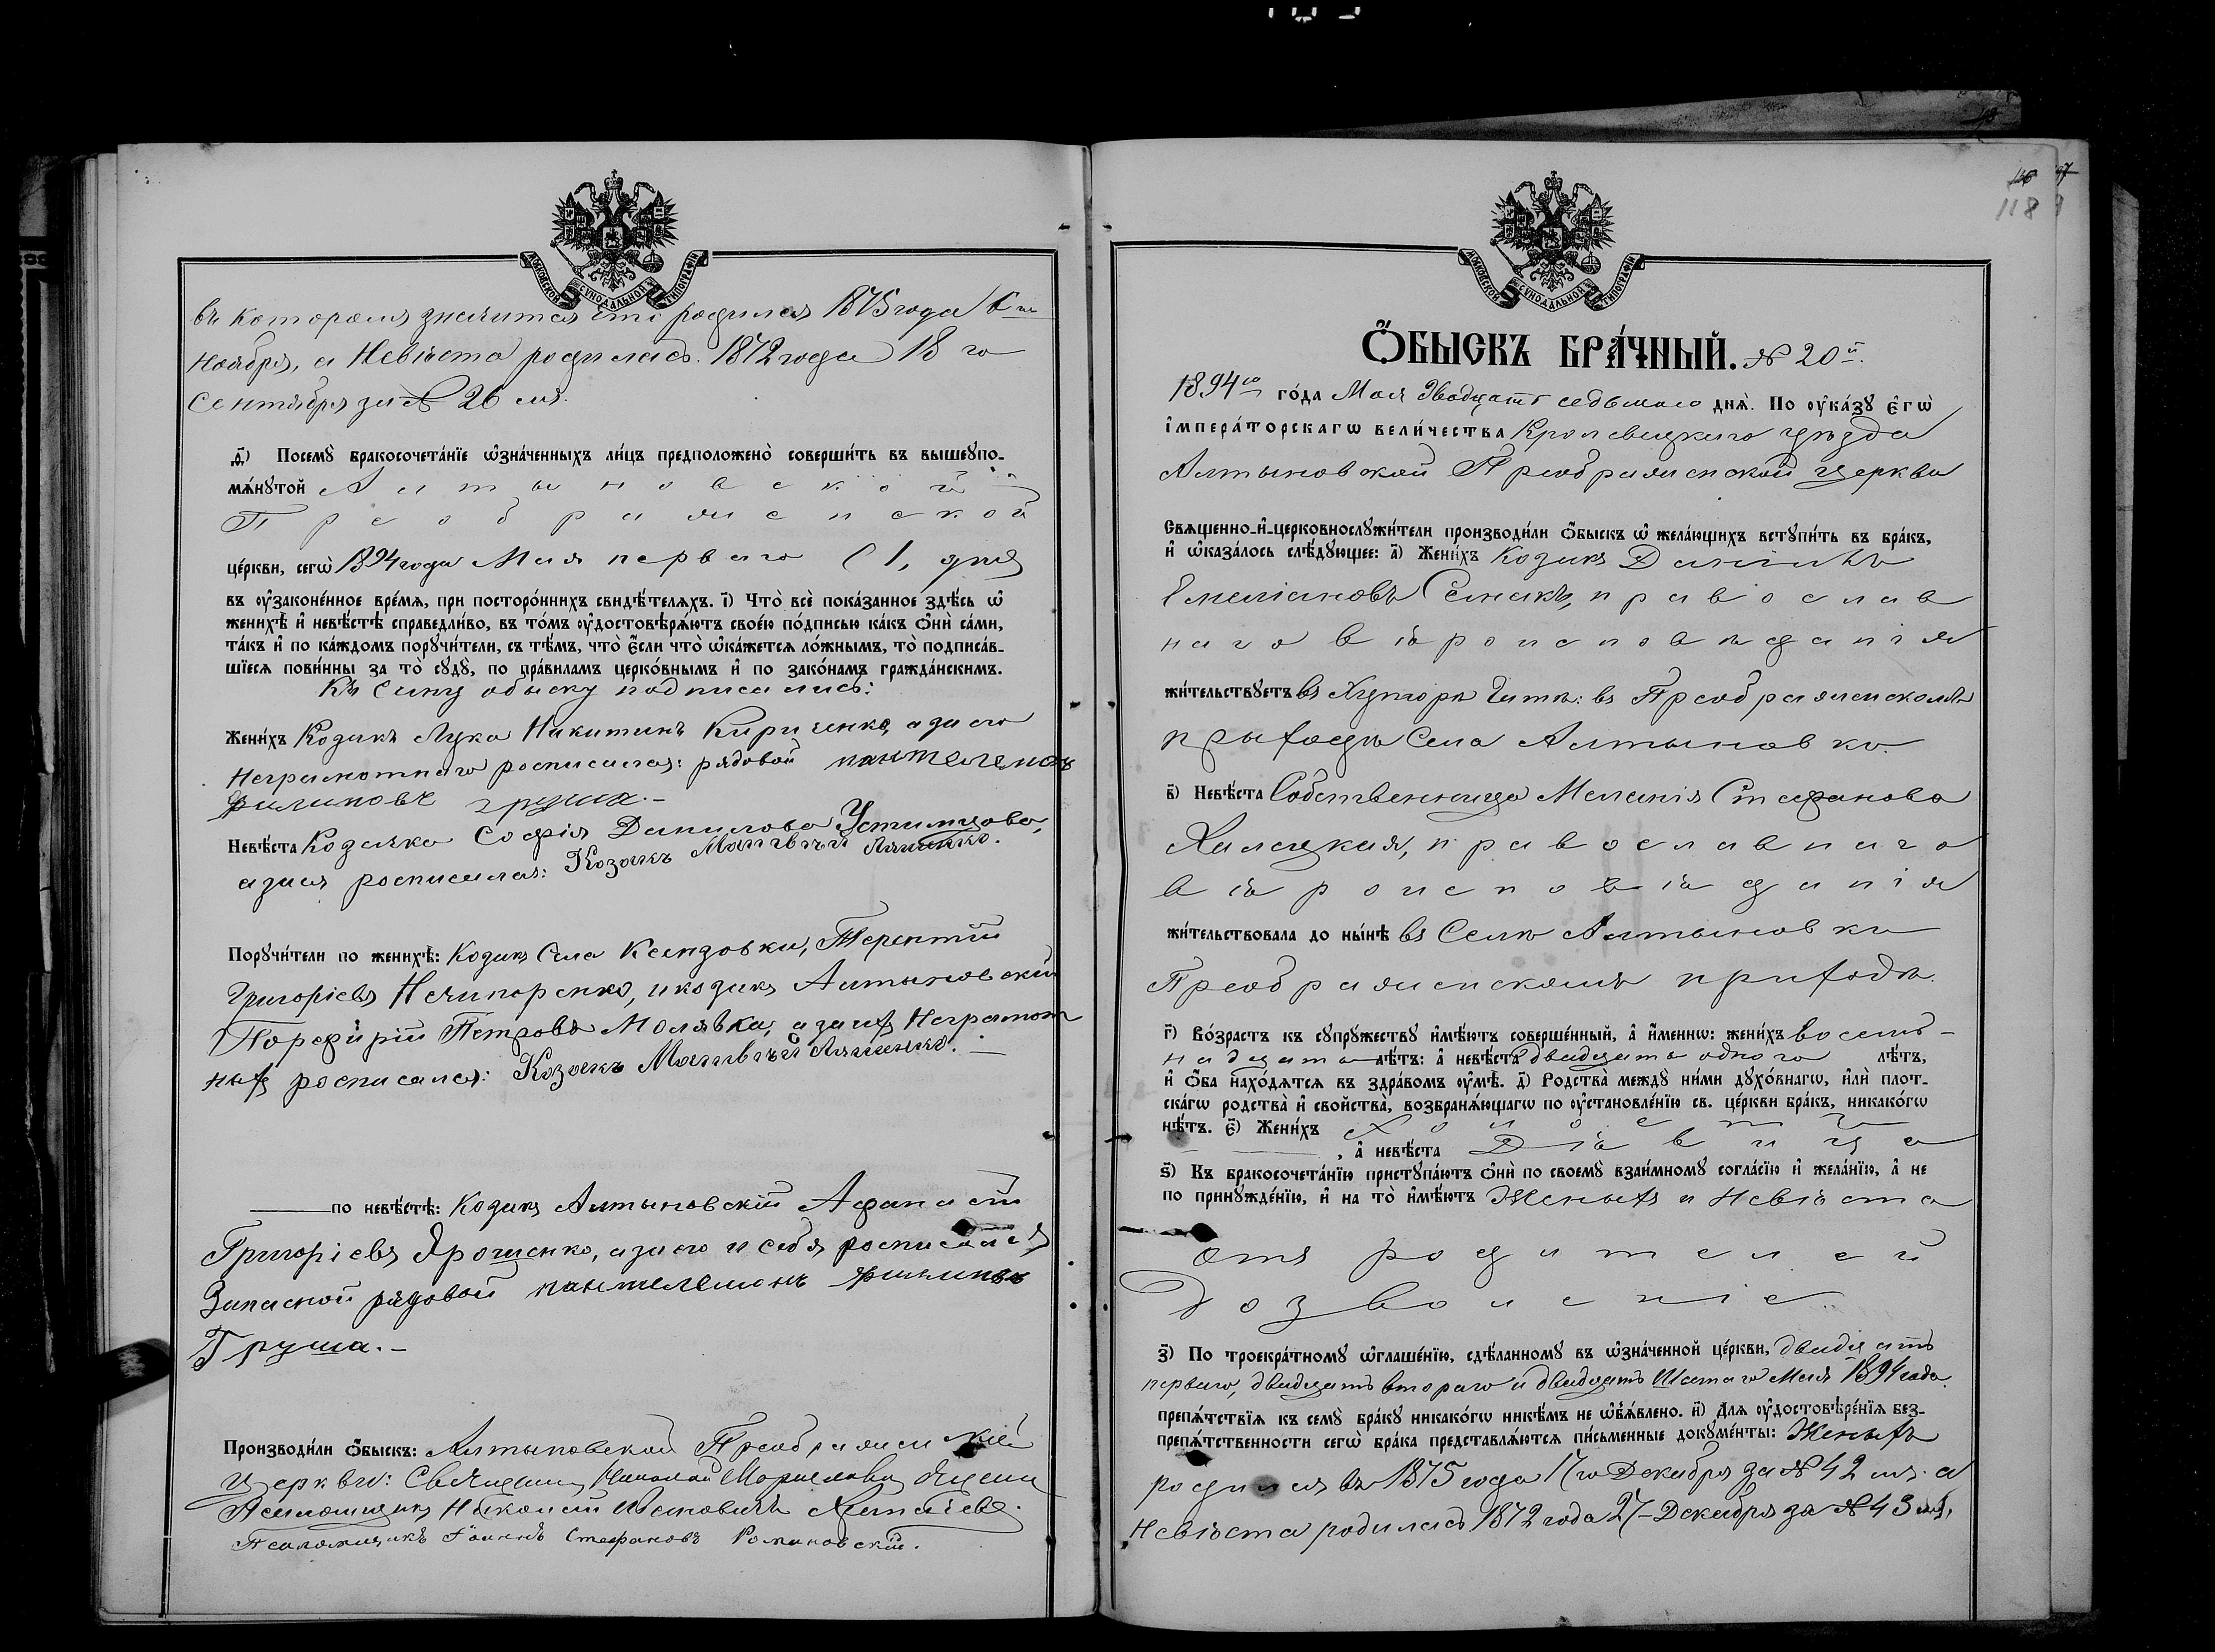 въ которомъ значится что родился 1875 года 6 го
Ноября, а Невѣста родилась 1872 года 18 го
Сентября за № 26 мъ.
Ѳ҃) Посемꙋ̀ бракосочета́нїе ѡ҆зна́ченныхъ ли́цъ предположено̀ соверши́ть въ вышеꙋпо-
мѧ́нꙋтой Алтыновской
Преображенской
це́ркви, сегѡ̀ 1894 года Мая перваго (1, дня
въ ᲂу҆законе́нное вре́мѧ, при посторо́ннихъ свидѣ́телѧхъ. І҃) Что̀ всѐ пока́занное здѣ́сь ѡ҆
женихѣ̀ и҆ невѣ́стѣ справедли́во, въ то́мъ ᲂу҆достовѣрѧ́ютъ свое́ю по́дписью ка́къ ѻ҆нѝ са́ми,
та́къ и҆ по ка́ждомъ порꙋчи́тели, съ тѣ́мъ, что̀ є҆́сли что̀ ѡ҆ка́жетсѧ ло́жнымъ, то̀ подписа́в-
шїесѧ пови́нны за то̀ сꙋдꙋ̀, по пра́виламъ церко́внымъ и҆ по зако́намъ гражда́нскимъ.
Къ сему обыску подписались:
Жени́хъ Козакъ Лука Никитинъ Кириченко, а за его
Неграмотнаго росписался: рядовой пантелемонъ
филиповъ груша.-
Невѣ́ста Козачка Софія Данилова Устимцова,
а за ея росписался: Козакъ Матвѣй Ляшенко.
Порꙋчи́тели по женихѣ̀: Козакъ Села Ксензовки, Терентій
Григоріевъ Нечипоренко, и козакъ Алтыновскій
Порфирій Петровъ Молявка, а за ихъ Неграмот
ныхъ росписался: Козакъ Матвѣй Ляшенко. —
по невѣ́стѣ: Козакъ Алтыновскій Афанасій
Григоріевъ Ярошенко, а за его и себя росписался
Запасной рядовой пантелемонъ филиповъ
Груша.-
Производи́ли ѻ҆́быскъ: Алтыновской Преображенской
Церкви: Священникъ Николай
Псаломщикъ
Псаломщикъ Іоаннъ Стефановъ Романовскій.
118
Ѻ҆́БЫСКЪ БРА́ЧНЫЙ. № 20 й.
1894 го го́да Мая двадцать седьмого днѧ̀. По ᲂу҆ка́зꙋ є҆гѡ̀
і҆мпера́торскагѡ вели́чества Кролевецкаго уѣзда
Алтыновской Преображенской церкви
Свѧще́нно-и҆-церковнослꙋжи́тели производи́ли ѻ҆́быскъ ѡ҆ жела́ющихъ встꙋпи́ть въ бра́къ,
и҆ ѡ҆каза́лось слѣ́дꙋющее: а҃) Жени́хъ Козакъ Даніилъ
Емеліановъ Семакъ, православ
наго вѣроисповѣданія
жи́тельствꙋетъ въ Хуторѣ въ Преображенскомъ
приходѣ Села Алтыновки.
в҃) Невѣ́ста Собственница Меланія Стефанова
Халецкая, православнаго
вѣроисповѣданія
жи́тельствовала до ны́нѣ въ Селѣ Алтыновки
Преображенскомъ приходѣ.
г҃) Во́зрастъ къ сꙋпрꙋ́жествꙋ и҆мѣ́ютъ соверше́нный, а҆ и҆́меннѡ: жени́хъ восем-
надцать лѣ́тъ: а҆ невѣ́ста двадцать одного лѣ́тъ,
и҆ ѻ҆́ба нахо́дѧтсѧ въ здра́вомъ ᲂу҆мѣ̀. д҃) Родства̀ междꙋ̀ ни́ми дꙋхо́внагѡ, и҆лѝ плот-
ска́гѡ родства̀ и҆ сво́йства̀, возбранѧ́ющагѡ по ᲂу҆становле́нїю св. це́ркви бра́къ, никако́гѡ
нѣ́тъ. є҃) Жени́хъ Холостъ
, а҆ невѣ́ста Дѣвица
ѕ҃) Къ бракосочета́нїю пристꙋпа́ютъ ѻ҆нѝ по своемꙋ̀ взаи́мномꙋ согла́сїю и҆ жела́нїю, а҆ не
по принꙋжде́нїю, и҆ на то̀ и҆мѣ́ютъ Женихъ и Невѣста
отъ родителей
дозволеніе.
з҃) По троекра́тномꙋ ѡ҆глаше́нїю, сдѣ́ланномꙋ въ ѡ҆зна́ченной це́ркви, двадцать
перваго, двадцать втораго и двадцать Шестаго Мая 1894 года.
препѧ́тствїѧ къ семꙋ̀ бра́кꙋ никако́гѡ никѣ́мъ не ѡ҆б̾ѧ́влено. и҃) Для ᲂу҆достовѣре́нїѧ без-
препѧ́тственности сегѡ̀ бра́ка представлѧ́ютсѧ пи́сьменные докꙋме́нты: Женихъ
родился въ 1875 года 17 го Декабря за № 42 мъ. а
Невѣста родилась 1872 года 27 Декабря за № 43 мъ.